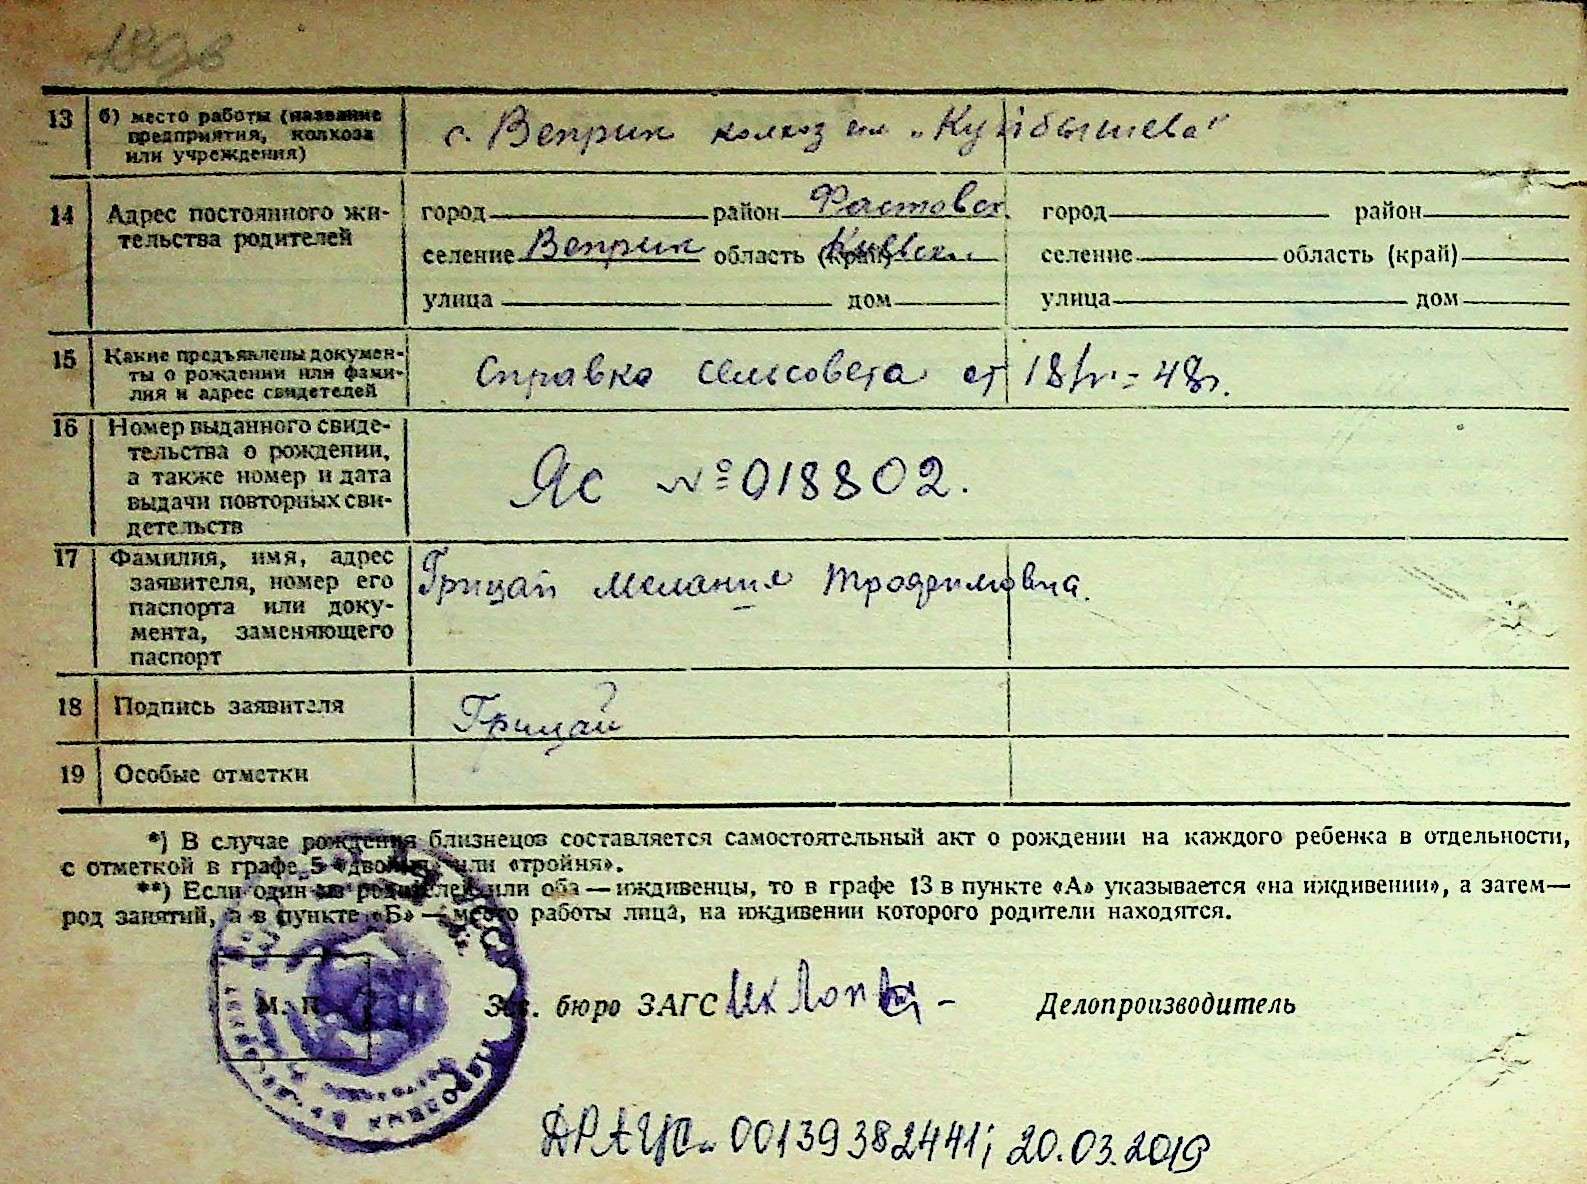 13 б) место работы (название
предприятия, колхоза
или учреждения)
с. Веприк колхоз им „Куйбышева"
14 Адрес постоянного жи-
тельства родителей
город район Фастовск. город район
селение Веприк область (край) Киевск. селение область (край)
улица дом улица дом
15 Какие предъявлены докумен-
ты о рождении или фами-
лия и адрес свидетелей
Справка сельсовета от 18/ 48г.
16 Номер выданного свиде-
тельства о рождении,
а также номер и дата
выдачи повторных сви-
детельств
Яс №018802.
17 Фамилия, имя, адрес
заявителя, номер его
паспорта или доку-
мента, заменяющего
паспорт
Грицай Мелания Трофимовна.
18 Подпись заявителя
Грицай
19 Особые отметки
*) В случае рождения близнецов составляется самостоятельный акт о рождении на каждого ребенка в отдельности,
с отметкой в графе 5 «двойня» или «тройня».
**) Если один из родителей или оба — иждивенцы, то в графе 13 в пункте «А» указывается «на иждивении», а затем—
род занятий, а в пункте «Б» — место работы лица, на иждивении которого родители находятся.
М. П.
Зав. бюро ЗАГС Делопроизводитель
ДРАЦС 00139382441; 20.03.2019